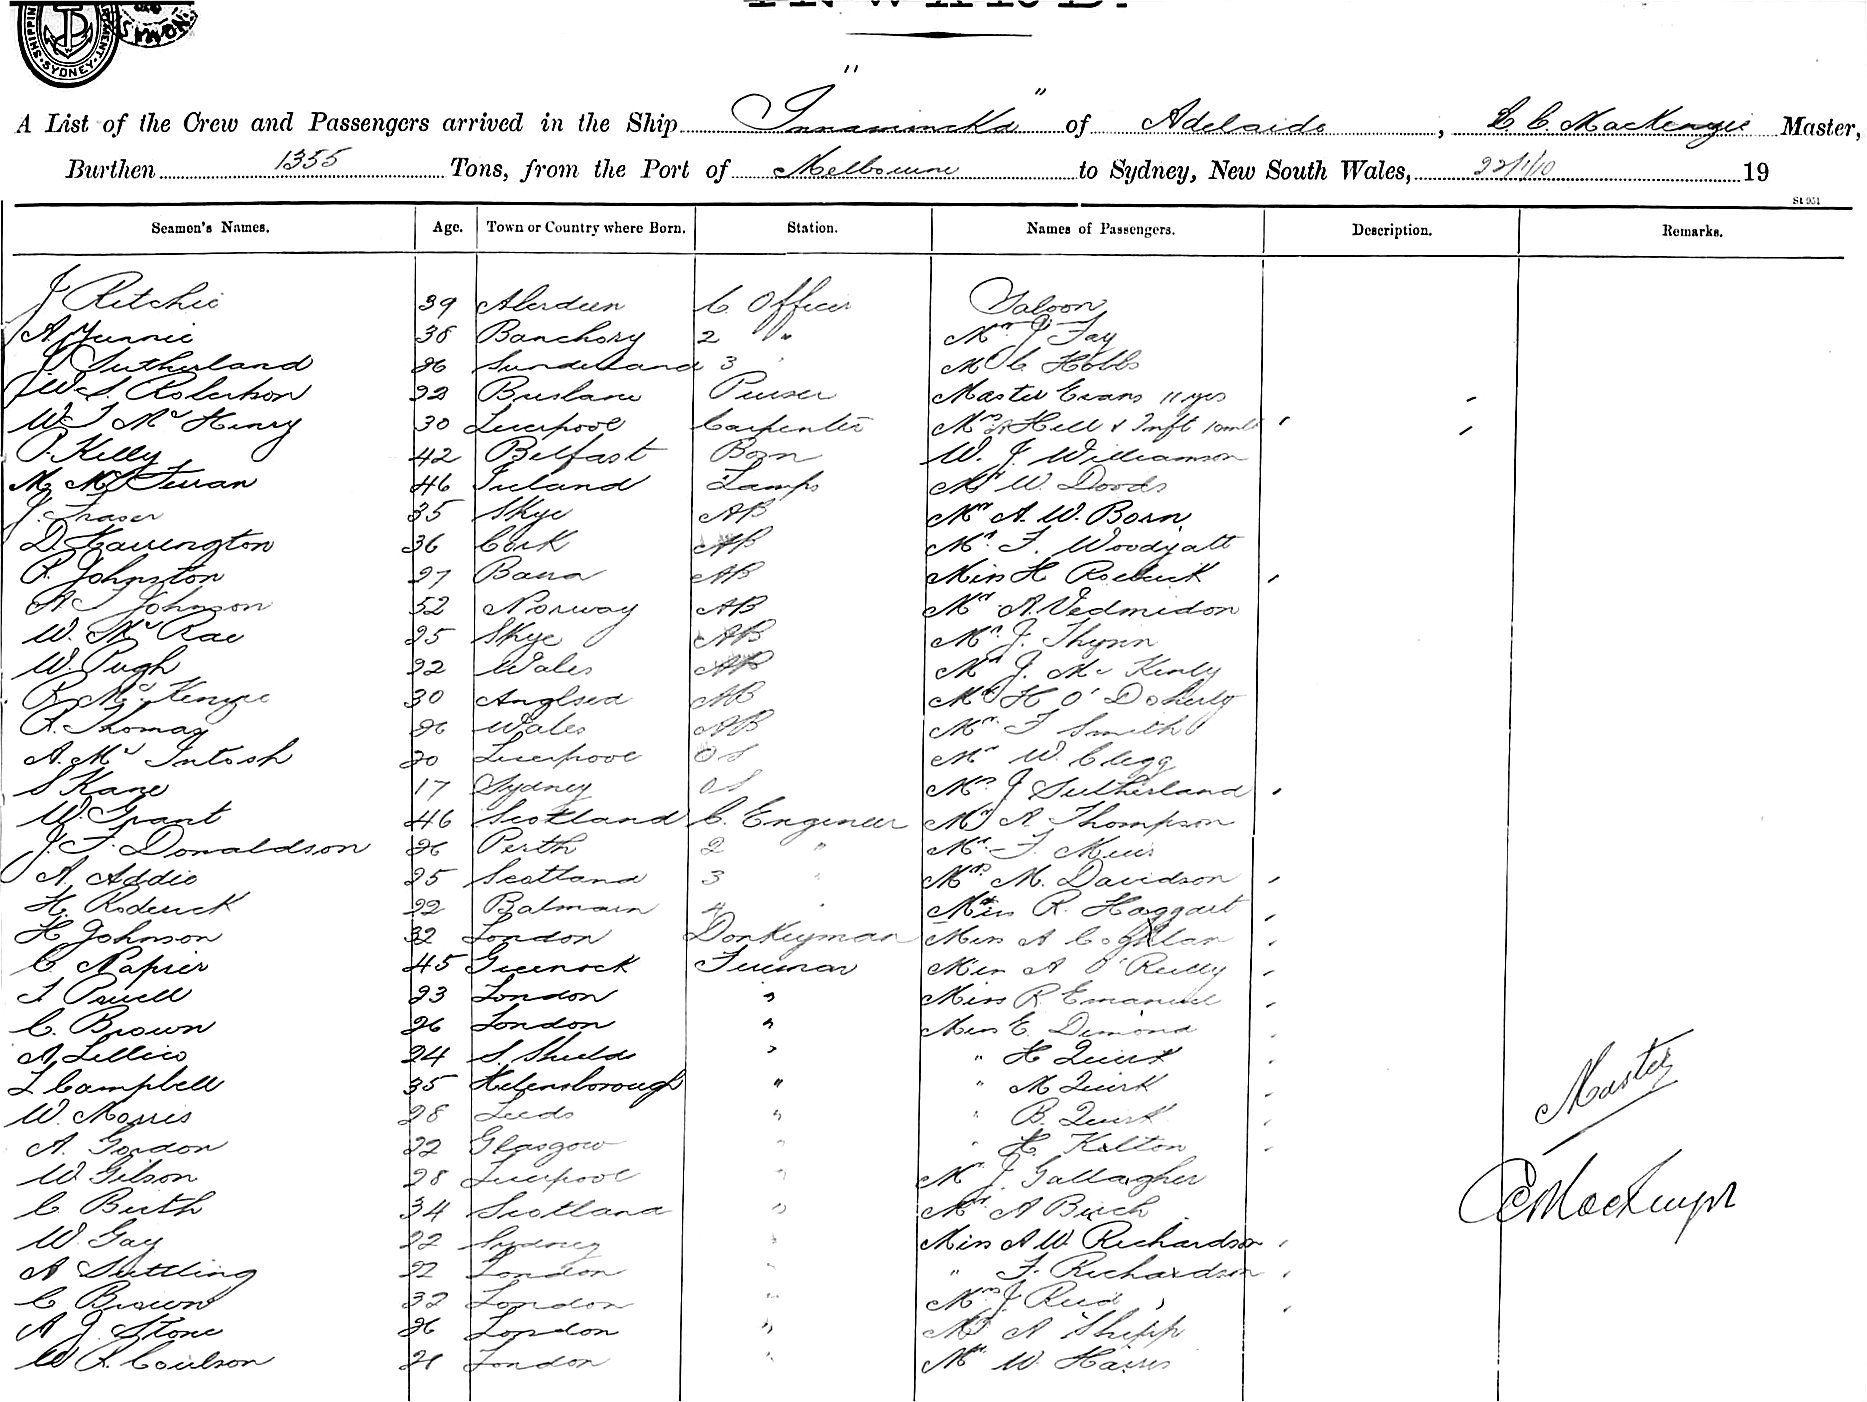 SYDNEY
A List of the Crew and Passengers arrived in the Ship "Innamincka" of Adelaide, C. MacKenzie Master,
Burthen 1355 Tons, from the Port of Melbourne to Sydney, New South Wales, 22/1/10 19
St 951
Seamen's Names. Age. Town or Country where Born. Station. Names of Passengers. Description. Remarks.
J Ritchie 39 Aberdeen C. Officer Saloon
A 38 Banchory 2 " Mr J Fay
J Sutherland 26 Sunderland 3 " Mr C Hobbs
W. S. Robertson 22 Brisbane Purser Master Evans 11 yrs
W J McHenry 30 Liverpool Carpenter Mrs Hill & Inft 10 mths
P. Kelly 42 Belfast Bosn W. J. Williamson
M McFerran 46 Ireland Lamps Mr W. Dodds
J. Fraser 35 Skye AB Mr A. W. Born
D. Harrington 36 Cork AB Mr. F. Woodyatt
R. Johnston 27 Barra AB Miss H Roebuck
A Johnson 52 Norway AB Mr A. Vedmidon
W. McRae 25 Skye AB Mr. J. Thynn
W. Pugh 22 Wales AB Mr J. McKenly
R. McKenzie 30 Anglsea AB Mr H O'Doherty
R. Thomas 26 Wales AB Mr. F Smith
A. McIntosh 20 Liverpool OS Mr W. Clegg
S Kane 17 Sydney OS Mrs J Sutherland
W. Grant 46 Scotland C. Engineer Mr A. Thompson
J. F. Donaldson 26 Perth 2 " Mr. F. Muir
A. Addie 25 Scotland 3 " Mrs M. Davidson
H. Roderick 22 Balmain 4 " Miss R. Haggart
H Johnson 32 London Donkeyman Miss A Coghlan
C. Napier 45 Greenock Fireman Miss A O'Reilly
J Powell 23 London " Miss R. Emanuel
C. Brown 26 London " Miss E. Dimond
A. Lillico 24 S. Shields " " H Quirk
L Campbell 35 Helensborough " " M Quirk
W. Morris 28 Leeds " " B. Quirk
A. Gordon 22 Glasgow " " H. Kelton
W. Gilson 28 Liverpool " Mr J. Gallagher
C Beith 34 Scotland " Mr A Birch
W. Gay 22 Sydney " Miss A W. Richardson
A Suttling 22 London " " F. Richardson
C Brown 32 London " Mrs J Reid
A J. Stone 26 London " Mr A Shipp
W R. Coulson 21 London " Mr W. Harris
Master
C MacKenzie